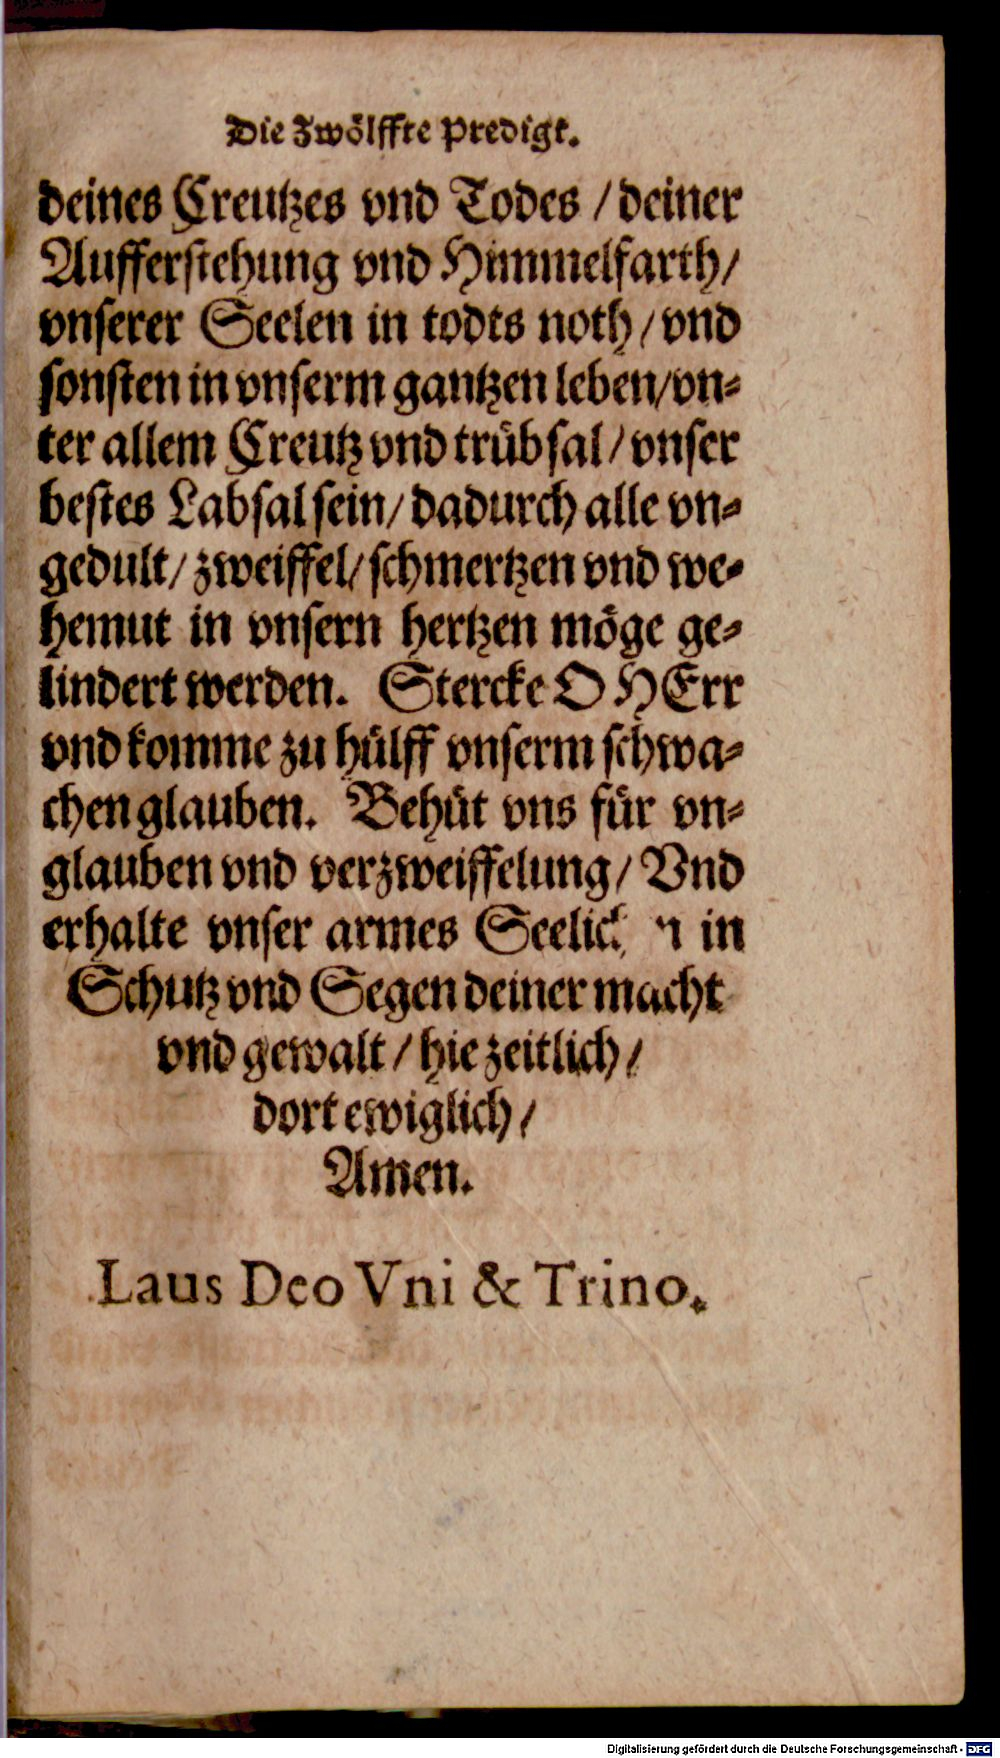 Die Zwölffte Predigt.
deines Creutzes vnd Todes / deiner
Aufferstehung vnd Himmelfarth /
vnserer Seelen in todts noth / vnd
sonsten in vnserm gantzen leben / vn-
ter allem Creutz vnd trübsal / vnser
bestes Labsal sein / dadurch alle vn-
gedult / zweiffel / schmertzen vnd we-
hemut in vnsern hertzen möge ge-
lindert werden. Stercke O HErr
vnd komme zu hülff vnserm schwa-
chen glauben. Behüt vns für vn-
glauben vnd verzweiffelung / Vnd
erhalte vnser armes in
Schutz vnd Segen deiner macht
vnd gewalt / hie zeitlich /
dort ewiglich /
Amen.
Laus Deo Vni & Trino.
Digitalisierung gefördert durch die Deutsche Forschungsgemeinschaft - DFG